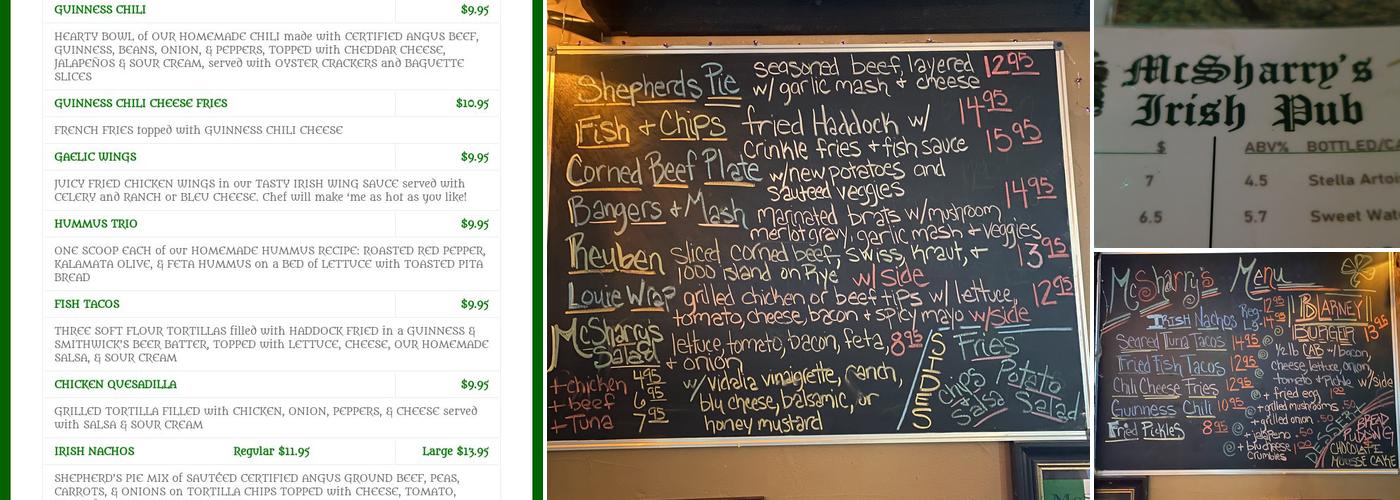 GUINNESS CHILI $9.95
HEARTY BOWL of OUR HOMEMADE CHILI made with CERTIFIED ANGUS BEEF,
GUINNESS, BEANS, ONION, & PEPPERS, TOPPED with CHEDDAR CHEESE,
JALAPEÑOS & SOUR CREAM, served with OYSTER CRACKERS and BAGUETTE
SLICES
GUINNESS CHILI CHEESE FRIES $10.95
FRENCH FRIES topped with GUINNESS CHILI CHEESE
GAELIC WINGS $9.95
JUICY FRIED CHICKEN WINGS in our TASTY IRISH WING SAUCE served with
CELERY and RANCH or BLEU CHEESE. Chef will make 'me as hot as you like!
HUMMUS TRIO $9.95
ONE SCOOP EACH of our HOMEMADE HUMMUS RECIPE: ROASTED RED PEPPER,
KALAMATA OLIVE, & FETA HUMMUS on a BED of LETTUCE with TOASTED PITA
BREAD
FISH TACOS $9.95
THREE SOFT FLOUR TORTILLAS filled with HADDOCK FRIED in a GUINNESS &
SMITHWICK'S BEER BATTER, TOPPED with LETTUCE, CHEESE, OUR HOMEMADE
SALSA, & SOUR CREAM
CHICKEN QUESADILLA $9.95
GRILLED TORTILLA FILLED with CHICKEN, ONION, PEPPERS, & CHEESE served
with SALSA & SOUR CREAM
IRISH NACHOS Regular $11.95 Large $13.95
SHEPHERD'S PIE MIX of SAUTÉED CERTIFIED ANGUS GROUND BEEF, PEAS,
CARROTS, & ONIONS on TORTILLA CHIPS TOPPED with CHEESE, TOMATO,
Shepherds Pie seasoned beef, layered 12.95
w/ garlic mash + cheese
Fish + Chips fried Haddock w/ 14.95
Crinkle fries + fish sauce 15.95
Corned Beef Plate w/new potatoes and
sauteed veggies 14.95
Bangers + Mash marinated brats w/mushroom
merlot gravy, garlic mash + veggies
Reuben Sliced corned beef, Swiss, Kraut, + 13.95
1000 island on Rye w/side
Louie Wrap grilled chicken or beef tips w/ lettuce, 12.95
tomato, cheese, bacon + spicy mayo w/side
McSharrys Salad lettuce, tomato, bacon, feta, 8.95
+ onion
+chicken 4.95 w/ Vidalia vinaigrette, ranch,
+beef 6.95 blu cheese, balsamic, or
+Tuna 7.95 honey mustard
SIDES
Fries
Chips Salsa
Potato Salad
McSharry's
Irish Pub
$ ABV% BOTTLED/CA
7 4.5 Stella Artoi
6.5 5.7 Sweet Wat
McSharry's Menu
Irish Nachos Reg. 12.95
Lg. 14.95
Seared Tuna Tacos 14.95
Fried Fish Tacos 12.95
Chili Cheese Fries 12.95
Guinness Chili 10.95
Fried Pickles 8.95
BLARNEY
BURGER 13.95
1/2 lb CAB w/bacon,
cheese, lettuce, onion,
tomato + Pickle w/side
+ fried egg 1.00
+ grilled mushrooms .50
+ grilled onion .50
+ jalapeno .50
+ blu cheese 1.00
Crumbles
DESSERT
BREAD
PUDDING
CHOCOLATE
MOUSSE CAKE